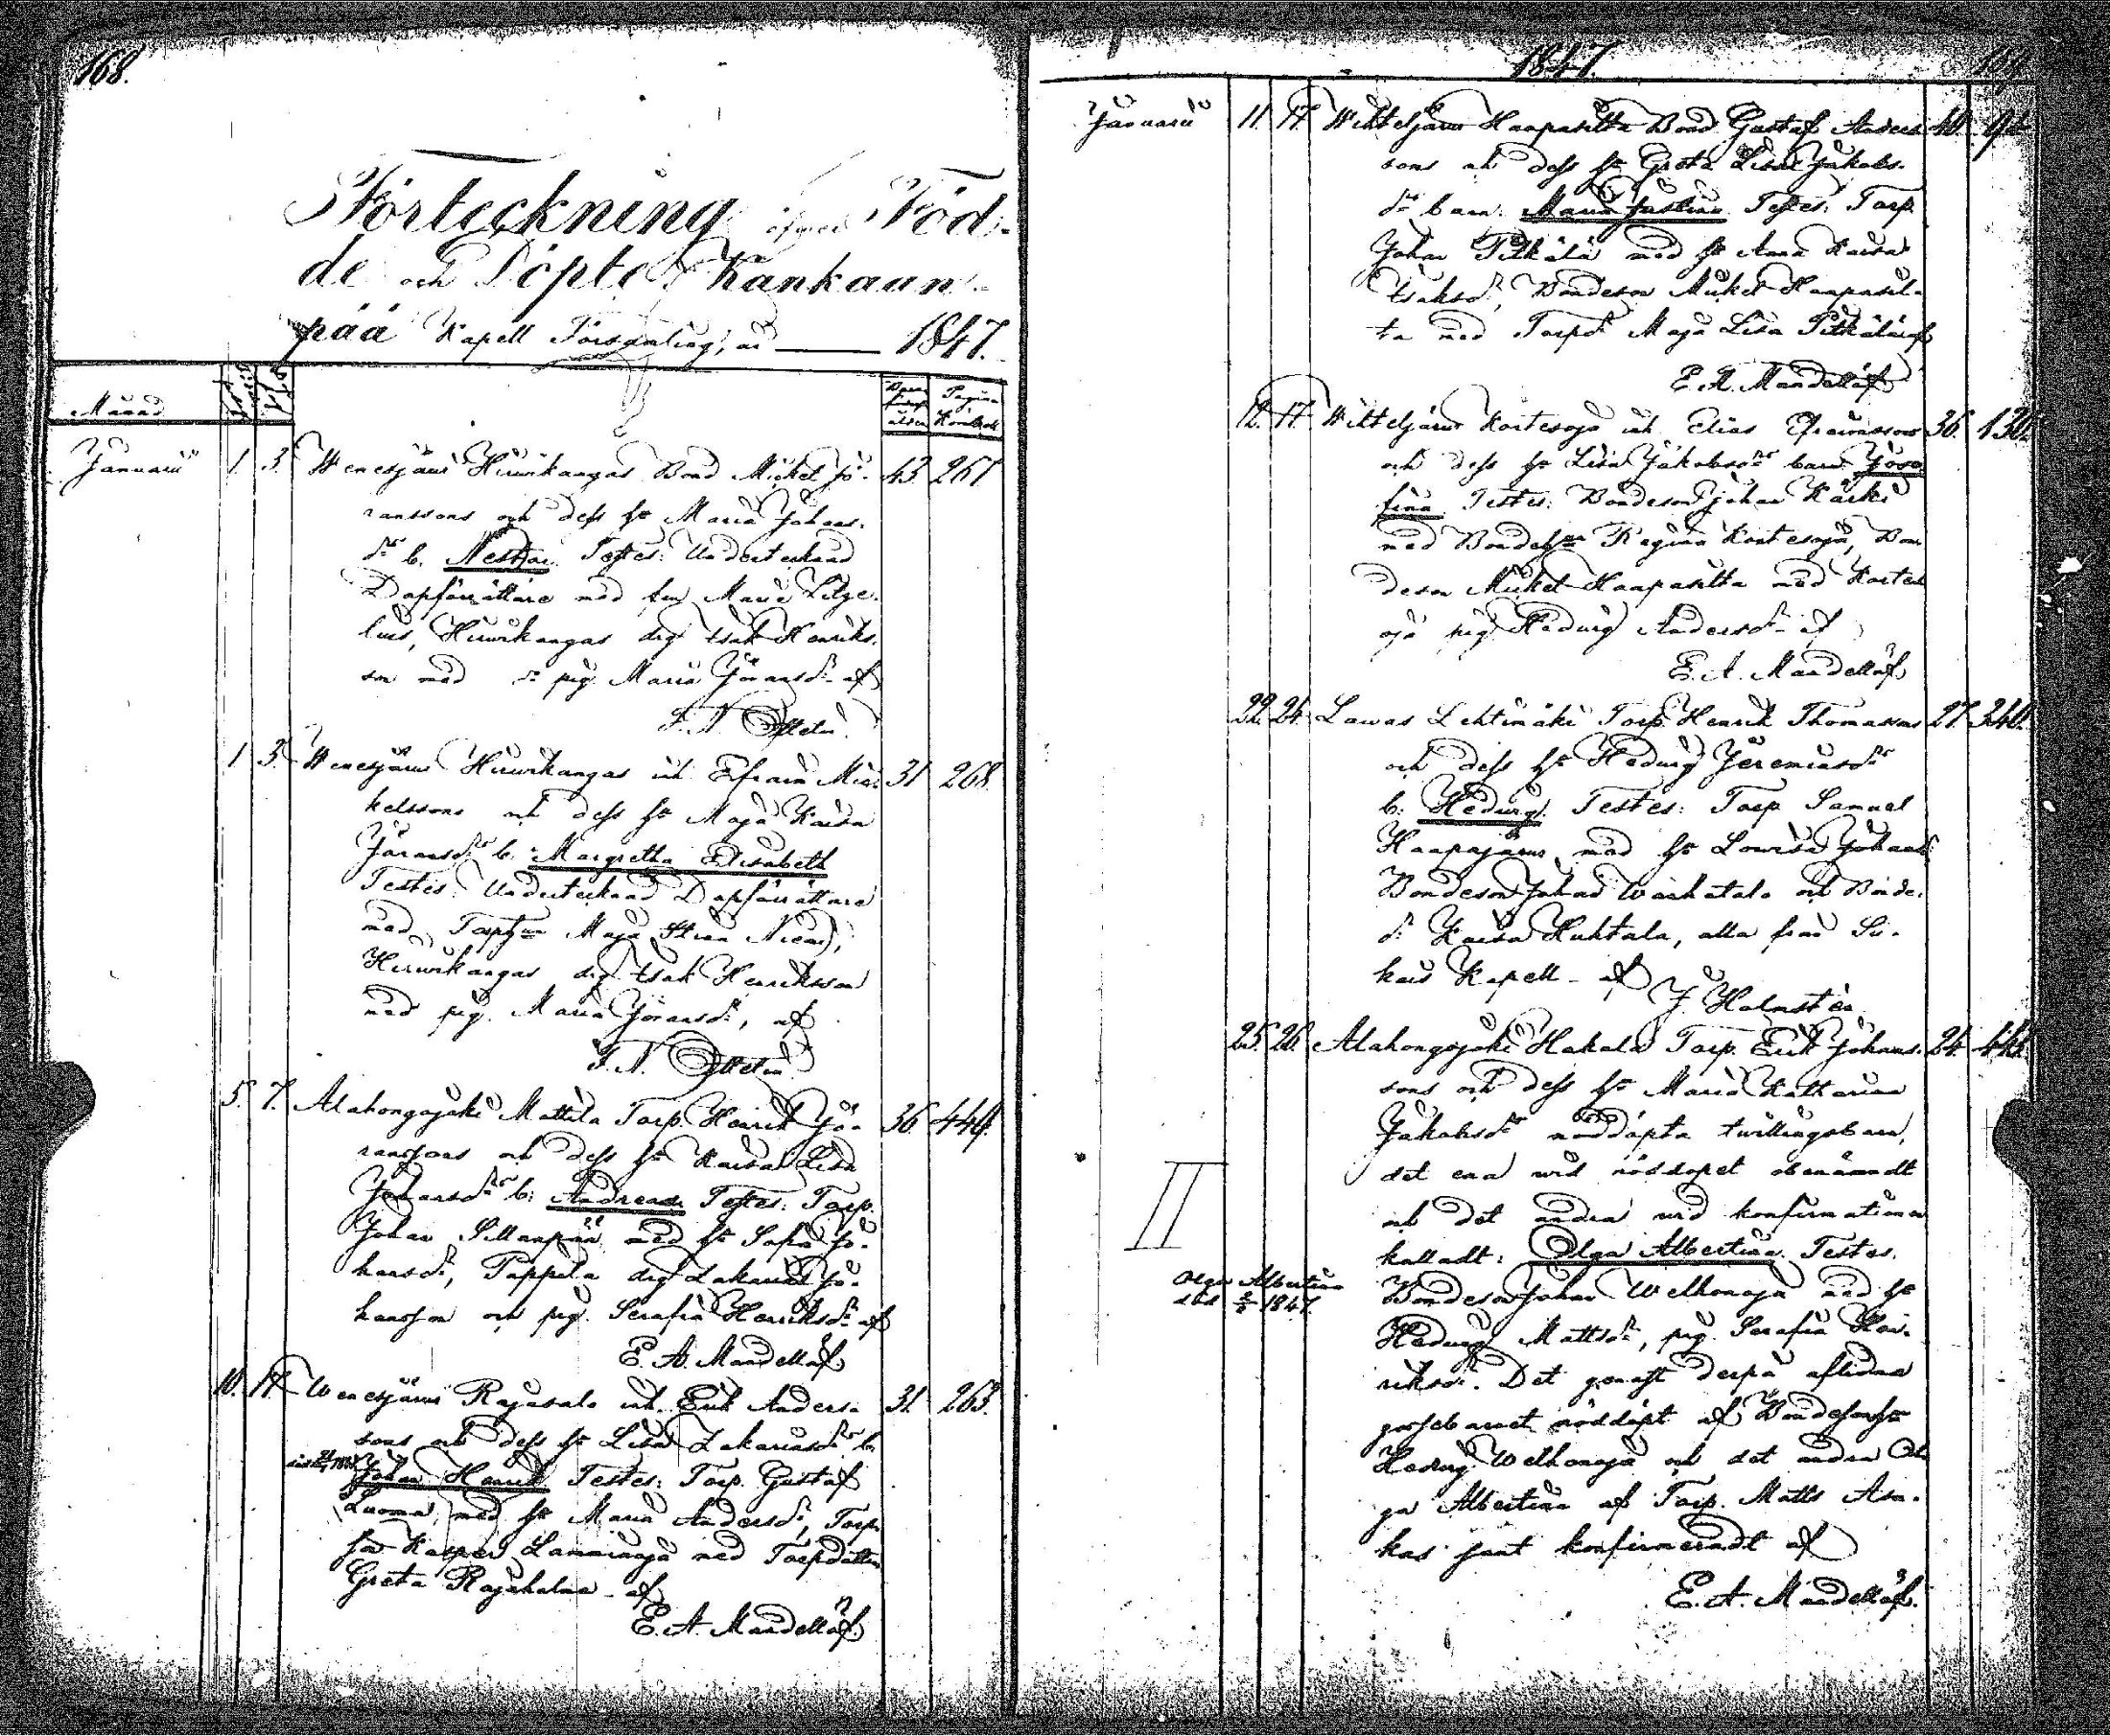 168.
Förteckning öfver Föd-
de och Döpte i Kankaan-
pää Kapell Församling, år 1847.
Månad
Pagina
Januarii 1. 3. Wenesjärvi Hirwikangas Bond Mickel Jö- 43 267
ranssons och dess h. Maria Johans-
dr b. Nestor Testes: Undertecknad
Dopförrättare med Maria Lilje-
lius, Hirwikangas drg Isak Henriks-
son med pig. Maria Göransdr af
1 3. Wenesjärvi Hirwikangas inh. Efraim Mic- 31 268.
kelssons och dess h. Maja Kaisa
Göransdr b. Margretha Elisabeth
Testes: Undertecknad Dopförrättare
med Maja Stina
Hirwikangas drg Isak Henriksson
med pig. Maria Göransdr, af
5. 7. Alahongojoki Mattila Torp. Henrik Jö- 36 449.
ranssons och dess h. Kaisa Lisa
Johansdr b: Andreas Testes: Torp.
Johan Sillanpää med h. Sofia Jo-
hansdr, Pappila drg Zakarias Jo-
hansson och pig. Serafia Henriksdr af
E. A. Mandellöf
10. 17. Wenesjärvi Rajasalo inh. Erik Anders- 31. 263.
sons och dess h. Lisa Zakariasdr b.
Johan Henrik Testes: Torp. Gustaf
Luoma, med h. Maria Andersdr, Torp.
Kasper Lamminoja med Torpdottern
Greta Rajahalme af
E. A. Mandellöf.
1847. 169
Januarii 11. 17. Wihteljärvi Haapasilta Bond Gustaf Anders- 40.
sons och dess h. Greta Lisa Jakobs-
dr barn: Maria Justina Testes: Torp.
Johan Pitkälä med h. Anna Kaisa
Isaksdr, Bondeson Mickel Haapasil-
ta med Torpdr Maja Lisa Pitkälä af
E. A. Mandellöf
12. 17. Wihteljärvi Kortesoja inh. Elias Efraimssons 36. 130.
och dess h. Lisa Jakobsdr barn Jose-
fina Testes: Bondeson Johan Kärki
med Bondeh. Regina Kortesoja, Bon-
deson Mickel Haapasilta med Kortes-
oja pig. Hedwig Andersdr af
E. A. Mandellöf
22. 24. Lawas Lehtimäki Torp. Henrik Thomassons 27. 340.
och dess h. Hedwig Jeremiasdr
b: Hedwig. Testes: Torp Samuel
Haapajärwi med h. Lowisa Johansdr
Bondeson Johan Warhatalo och Bonde-
d. Kaisa Huhtala, alla från Sii-
kais Kapell - af
J. Holmstén
25. 26. Alahongojoki Hakala Torp. Erik Johans- 24.
sons och dess h. Maria Katharina
Jakobsdr nöddöpta twillingsbarn,
det ena wid nöddopet obenämndt
och det andra wid konfirmationen
kalladt: Olga Albertina Testes.
Olga Albertina
död 1847.
Bondeson Johan Welhonoja med h.
Hedwig Mattsdr, pig. Serafia Hen-
riksdr. Det genast derpå aflidna
gossebarnet nöddöpt af Bondesonsh.
Hedwig Welhonoja och det andra Ol-
ga Albertina af Torp. Matts Asu-
kas samt konfirmeradt af
E. A. Mandellöf.